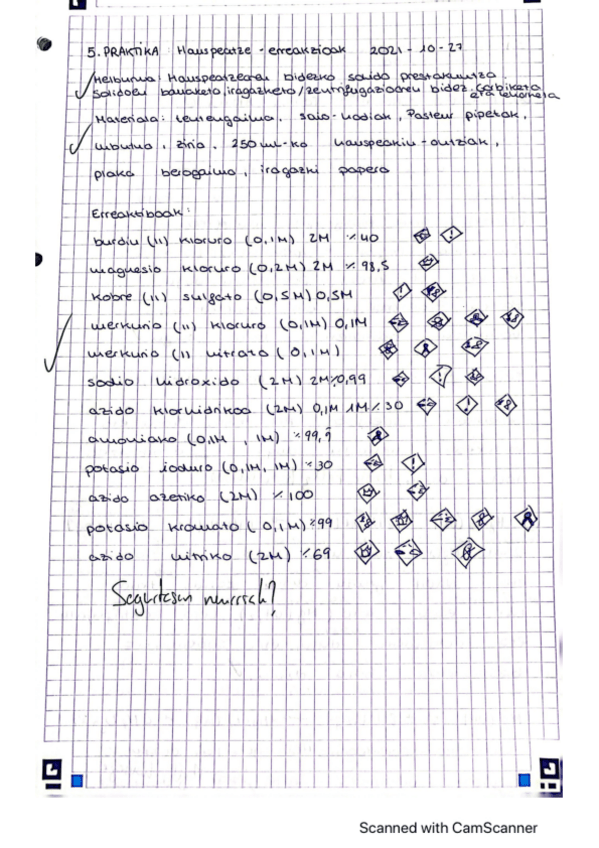 5. PRAKTIKA Hauspeatze-erreakzioak 2021-10-27
Helburua: Hauspeatzearen bidezko solido prestakuntza.
Solidoen banaketa, iragazketa/zentrifugazioaren bidez. Garbiketa
eta lehorketa
Materiala: saio-hodiak, Pasteur pipetak,
inbutua, ziria, 250 ml-ko hauspeakin-ontziak,
plaka berogailua, iragazki papera
Erreaktiboak:
burdin (II) kloruro (0,1M) 2M %40
magnesio kloruro (0,2M) 2M %98,5
kobre (II) sulfato (0,5M) 0,5M
merkurio (II) kloruro (0,1M) 0,1M
merkurio (I) nitrato (0,1M)
sodio hidroxido (2M) 2M %0,99
azido klorhidrikoa (2M) 0,1M 1M %30
amoniako (0,1M, 1M) %99,9
potasio ioduro (0,1M, 1M) %30
azido azetiko (2M) %100
potasio kromato (0,1M) %99
azido nitriko (2M) %69
Segurtasun neurriak?
Scanned with CamScanner